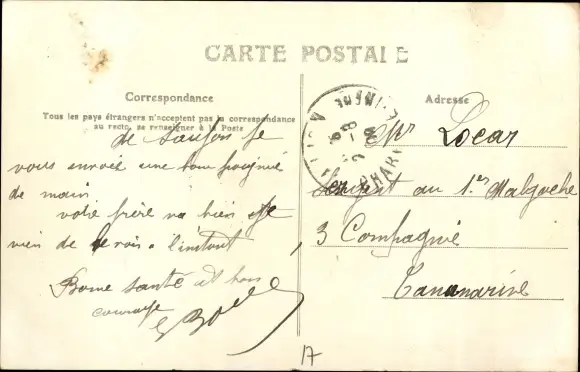 CARTE POSTALE
Correspondance
Tous les pays étrangers n'acceptent pas la correspondance
au recto, se renseigner à la Poste
de Saujon Je
vous envoie une bonne poignée
de main
votre frère va bien Je
vien de le voir a l'instant
Bonne santé et bon
courage
Adresse
Mr Locar
Sergent au 1er Malgache
3 Compagnie
Tananarive
17